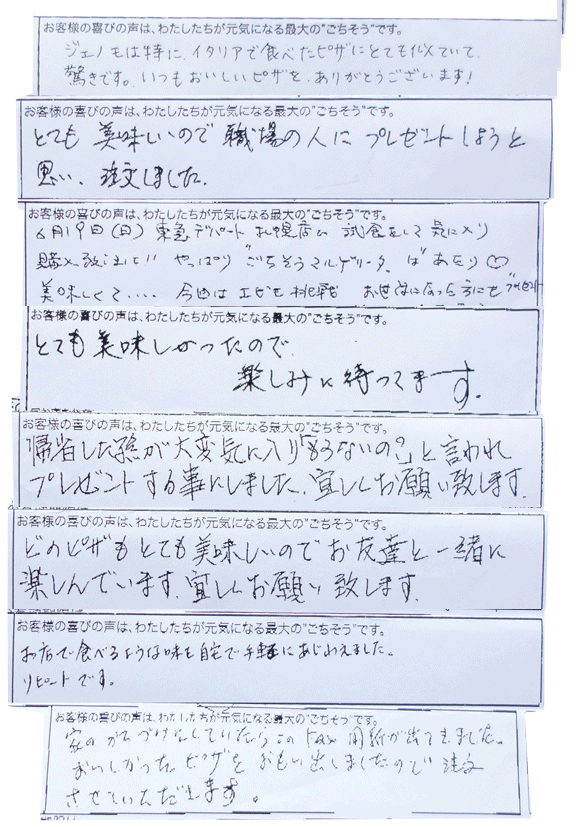 お客様の喜びの声は、わたしたちが元気になる最大の"ごちそう"です。
ジェノもは特に、イタリアで食べたピザにとても似ていて、
驚きです。いつもおいしいピザを、ありがとうございます！
お客様の喜びの声は、わたしたちが元気になる最大の"ごちそう"です。
とても 美味しいので 職場の人に プレゼントしようと
思い、注文しました。
お客様の喜びの声は、わたしたちが元気になる最大の"ごちそう"です。
6月19日(日) 東急デパート札幌店に 試食をして気に入り
購入 やっぱり "ごちそうマルゲリータ" は あたり♡
美味しくて.... 今回は エビも挑戦 お世話になった方にもプレゼント
お客様の喜びの声は、わたしたちが元気になる最大の"ごちそう"です。
とても美味しかったので、
楽しみに待ってます。
お客様の喜びの声は、わたしたちが元気になる最大の"ごちそう"です。
帰省した孫が大変気に入り「もうないの？」と言われ
プレゼントする事にしました。宜しくお願い致します。
お客様の喜びの声は、わたしたちが元気になる最大の"ごちそう"です。
どのピザもとても美味しいのでお友達と一緒に
楽しんでいます。宜しくお願い致します。
お客様の喜びの声は、わたしたちが元気になる最大の"ごちそう"です。
お店で食べるような味を自宅で手軽にあじわえました。
リピートです。
お客様の喜びの声は、わたしたちが元気になる最大の"ごちそう"です。
家のかたづけをしていたらこのFAX用紙が出てきました。
おいしかったピザをおもい出しましたので注文
させていただきます。